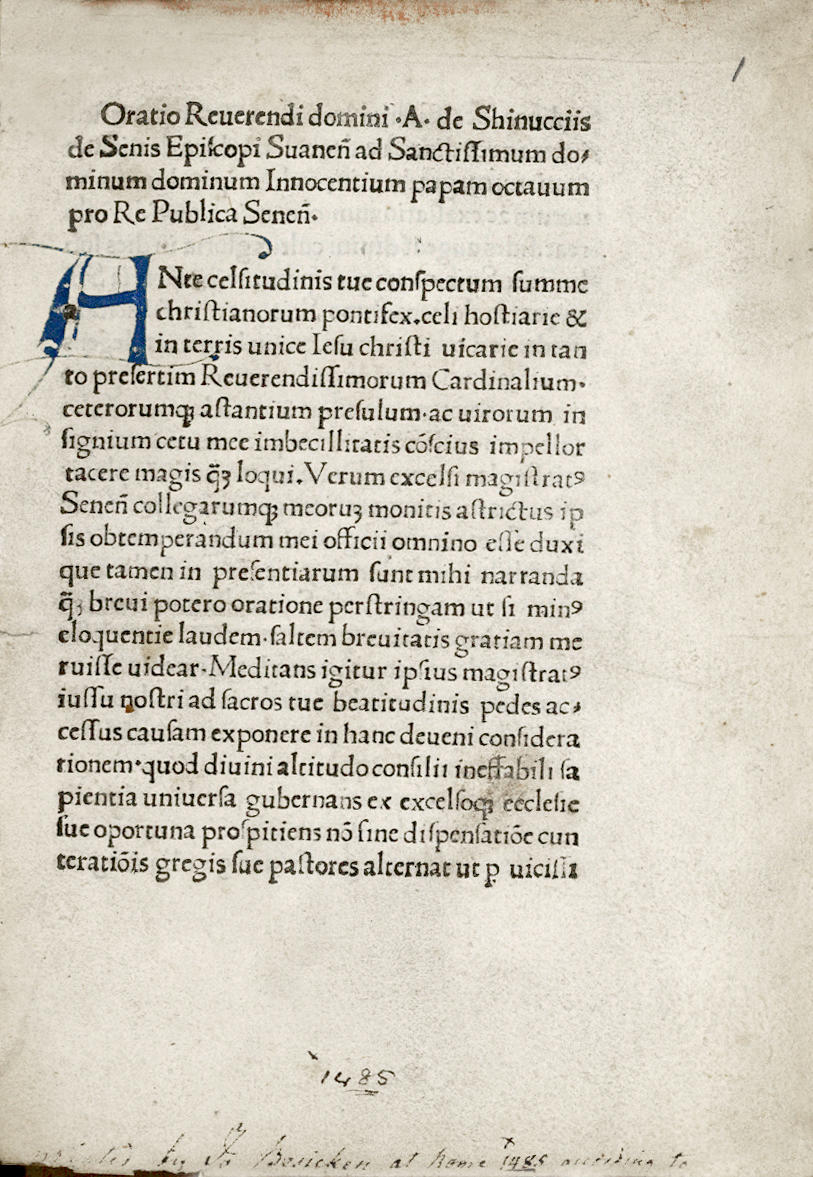 1
Oratio Reuerendi domini ·A· de Shinucciis
de Senis Epiſcopi Suaneñ ad Sanctiſſimum do⸗
minum dominum Innocentium papam octauum
pro Re Publica Seneñ·
ANte celſitudinis tue conſpectum ſumme
chriſtianorum pontifex.celi hoſtiarie &
in terris unice Ieſu chriſti uicarie in tan
to preſertim Reuerendiſſimorum Cardinalium·
ceterorumqꝫ aſtantium preſulum·ac uirorum in
ſignium cetu mee imbecillitatis cõſcius impellor
tacere magis q̃ꝫ loqui.Verum excelſi magiſtratꝰ
Seneñ collegarumqꝫ meoruꝫ monitis aſtrictus ip
ſis obtemperandum mei officii omnino eſſe duxi
que tamen in preſentiarum ſunt mihi narranda
q̃ꝫ breui potero oratione perſtringam ut ſi minꝰ
eloquentie laudem·ſaltem breuitatis gratiam me
ruiſſe uidear·Meditans igitur ipſius magiſtratꝰ
iuſſu noſtri ad ſacros tue beatitudinis pedes ac⸗
ceſſus cauſam exponere in hanc deueni conſidera
tionem·quod diuini altitudo conſilii ineffabili ſa
pientia uniuerſa gubernans ex excelſoqꝫ eccleſie
ſue oportuna proſpitiens nõ ſine diſpenſatiõe cun
teratiõis gregis ſue paſtores alternat ut ꝑ uiciſſi
1485
by Jo Besicken at Rome 1485 according to